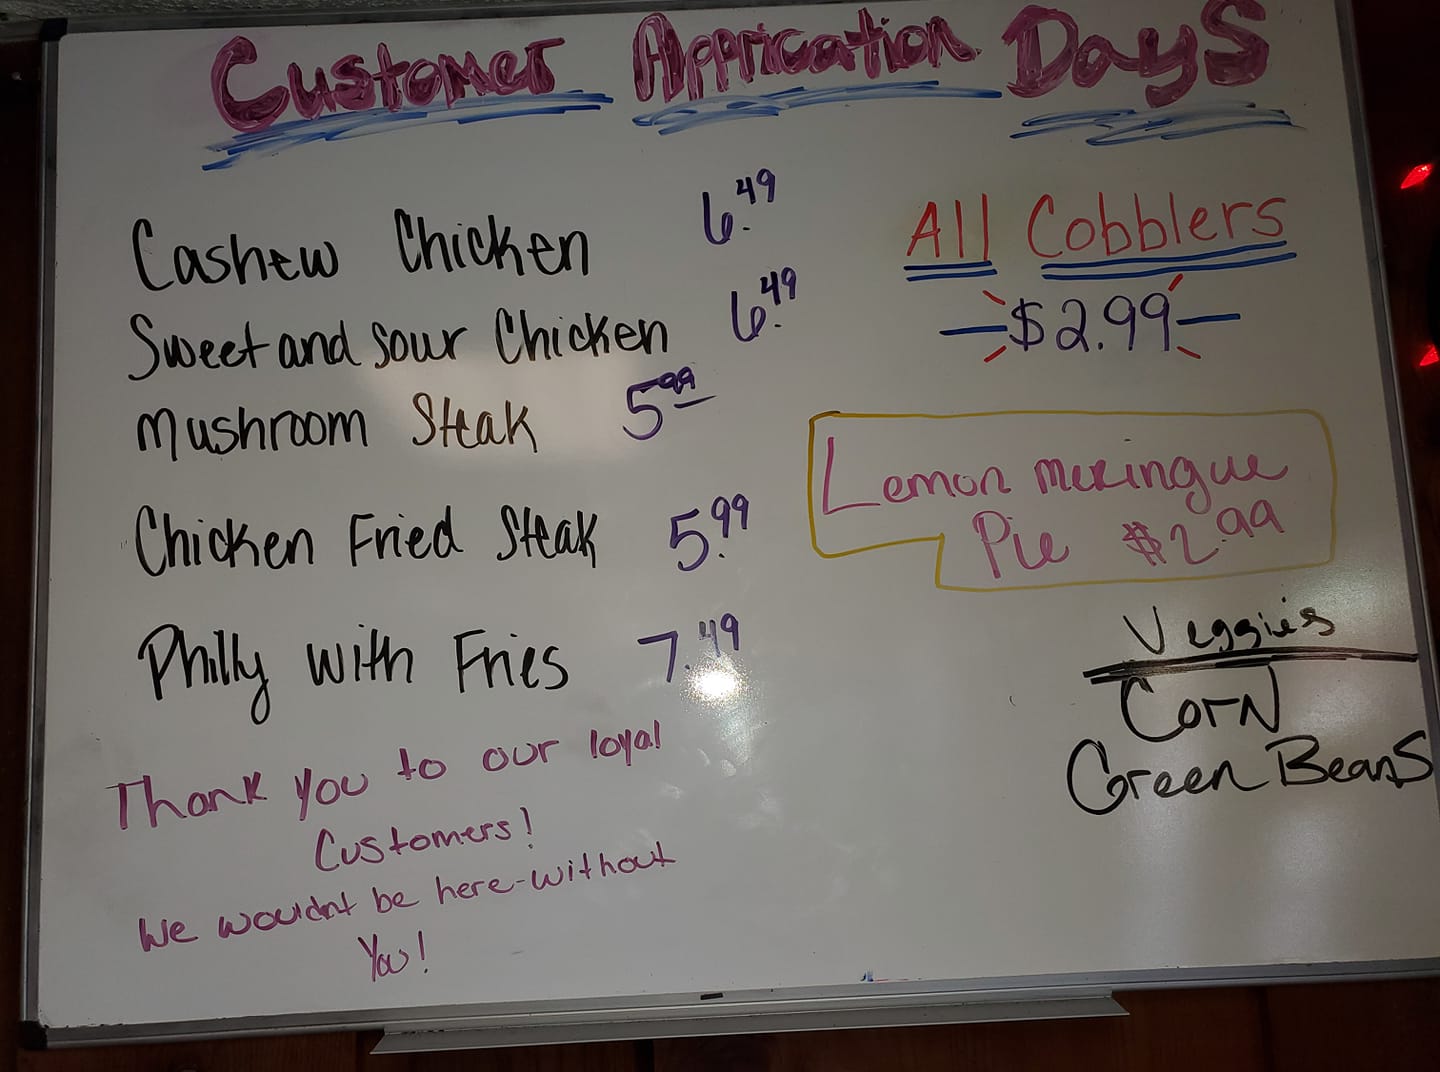 Customer Apprication Days
Cashew Chicken 6.49
Sweet and Sour Chicken 6.49
Mushroom Steak 5.99
Chicken Fried Steak 5.99
Philly with Fries 7.49
Thank you to our loyal
Customers!
We wouldnt be here-without
You!
All Cobblers
$2.99
Lemon meringue
Pie $2.99
Veggies
Corn
Green Beans